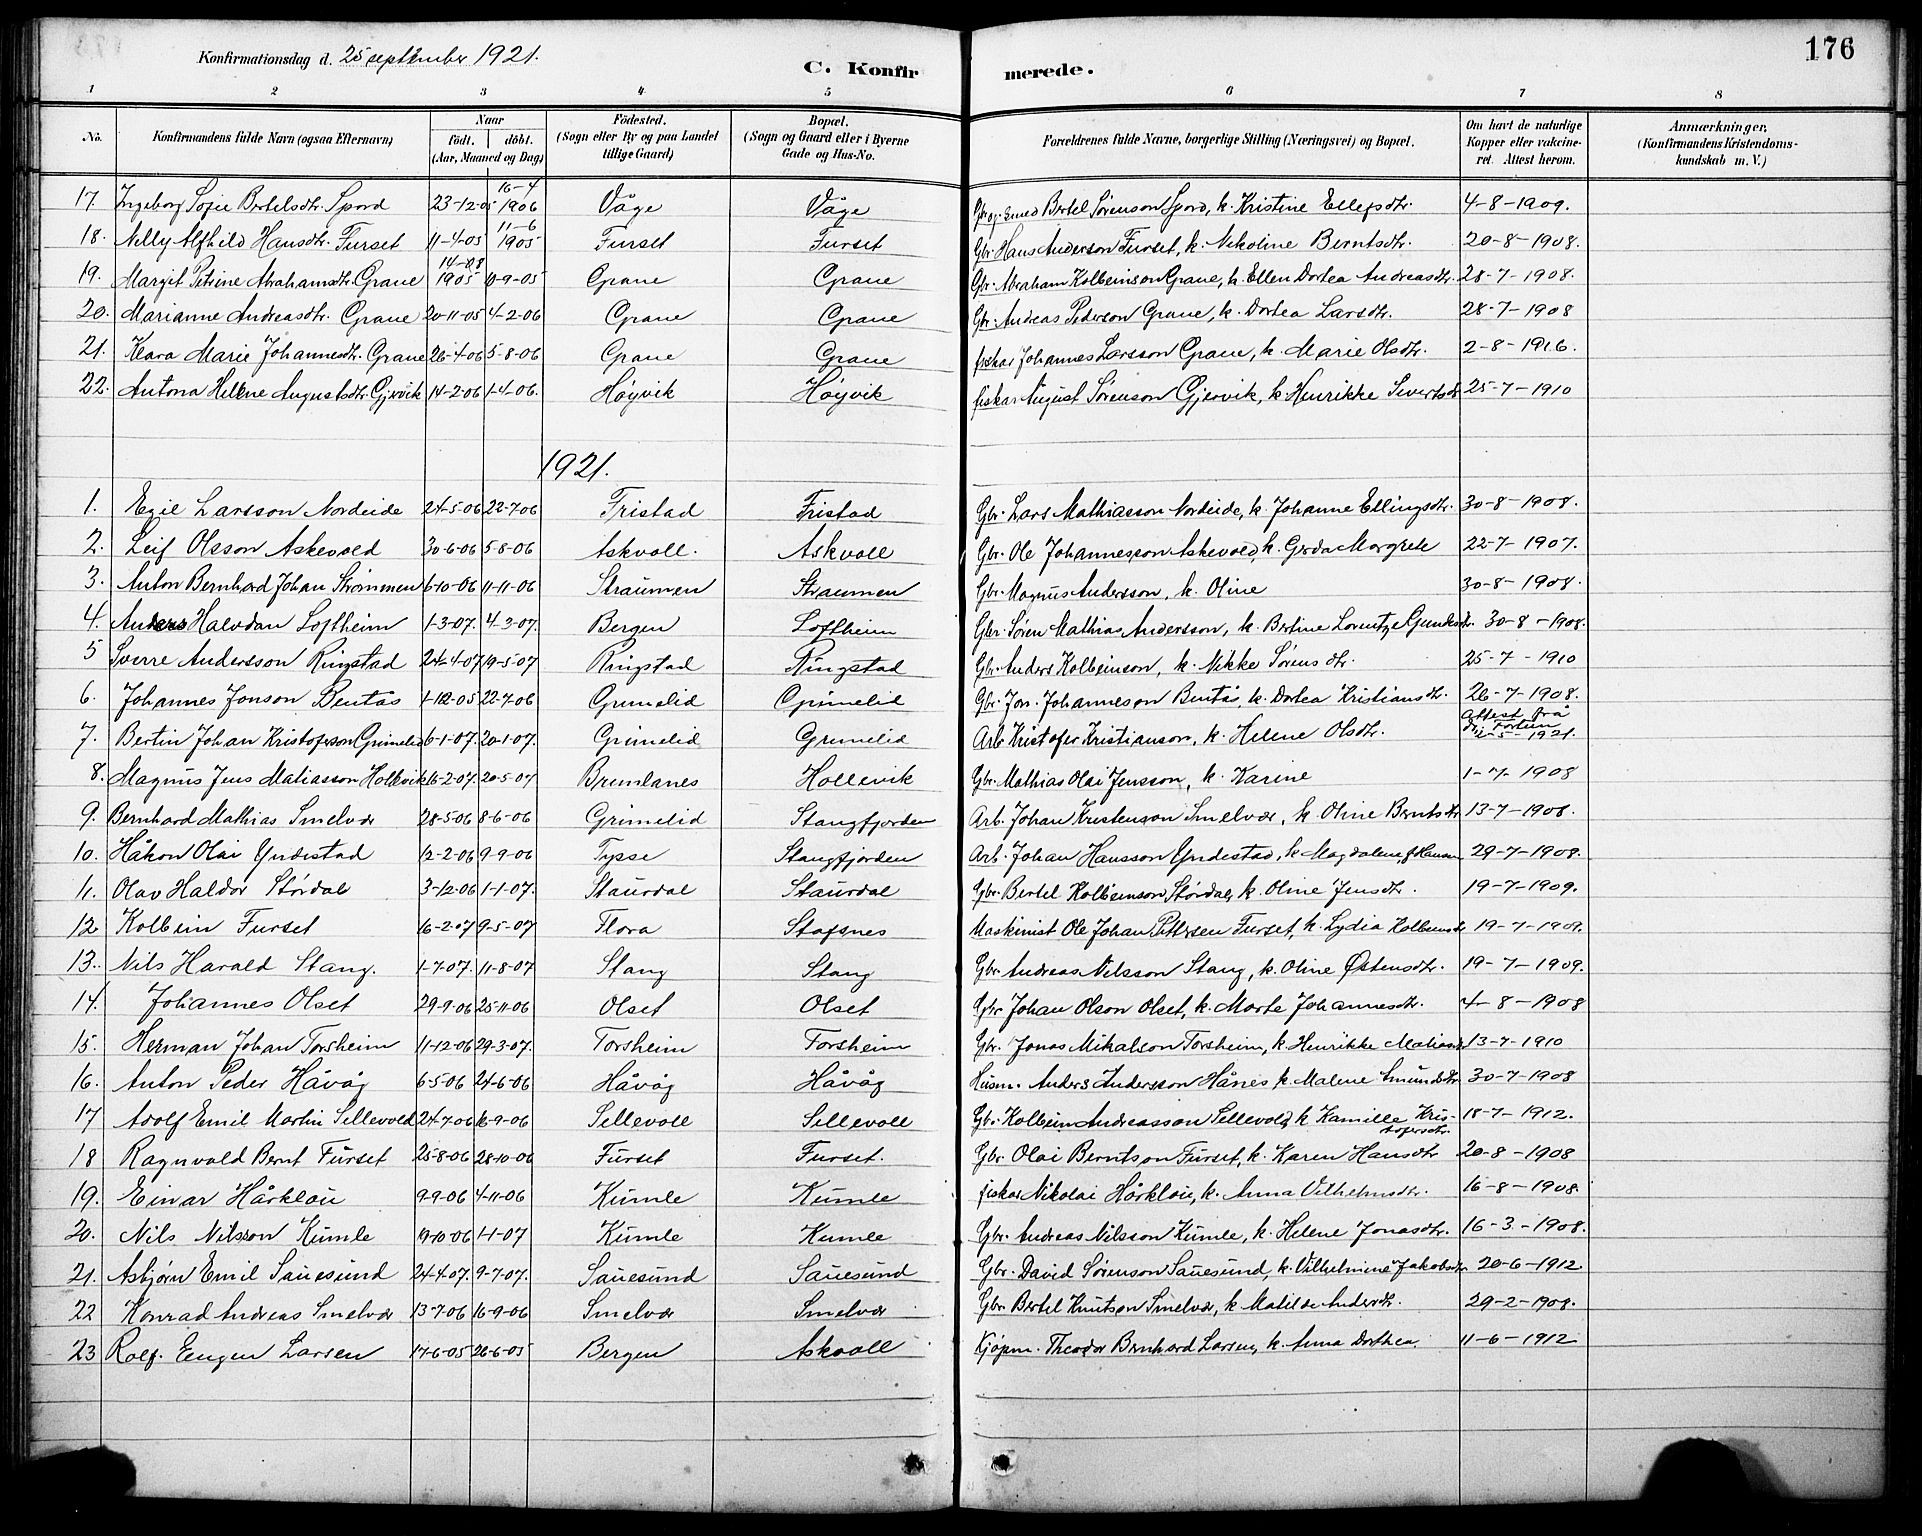 Konfirmationsdag d. 25 september 1921.
C. Konfirmerede.
176
1 2 3 4 5 6 7 8
No. | Konfirmandens fulde Navn (ogsaa Efternavn) | Naar födt. döbt. (Aar, Maaned og Dag) | Födested. (Sogn eller By og paa Landet tillige Gaard) | Bopæl. (Sogn og Gaard eller i Byerne Gade og Hus-No. | Forældrenes fulde Navne, borgerlige Stilling (Næringsvei) og Bopæl. | Om havt de naturlige Kopper eller vakcineret. Attest herom. | Anmærkninger. (Konfirmandens Kristendomskundskab m. V.)
17. Ingeborg Sofie Bertelsdtr. Spord 23-12-05 16-4 1906 Våge Våge Gbr. og smed Bertel Sørenson Spord, k. Kristine Ellefsdtr. 4-8-1909.
18. Nelly Alfhild Hansdtr. Furset 11-4-05 11-6 1905 Furset Furset Gbr. Hans Anderson Furset, k. Nikoline Berntsdtr. 20-8-1908.
19. Margit Petrine Abrahamsdtr. Grane 14-08 1905 10-9-05 Grane Grane Gbr. Abraham Kolbeinson Grane, k. Ellen Dortea Andreasdtr. 28-7-1908.
20. Marianne Andreasdtr. Grane 20-11-05 4-2-06 Grane Grane Gbr. Andreas Pederson Grane, k. Dortea Larsdtr. 28-7-1908
21. Klara Marie Johannesdtr. Grane 26-4-06 5-8-06 Grane Grane fiskar Johannes Larsson Grane, k. Marie Olsdtr. 2-8-1916.
22. Antona Helene Augustsdtr. Gjervik 14-2-06 1-4-06. Høyvik Høyvik fiskar August Sørenson Gjervik, k. Henrikke Sivertsdtr 25-7-1910
1921.
1. Egil Larsson Nordeide 24-5-06 22-7-06 Fristad Fristad Gbr. Lars Mathiasson Nordeide, k. Johanne Ellingsdtr. 30-8-1908.
2. Leif Olsson Askevold 30-6-06 5-8-06 Askvoll. Askvoll Gbr. Ole Johannesson Askevold, k. Gerda Margrete 22-7-1907.
3. Anton Bernhard Johan Strømmen 6-10-06 11-11-06 Straumen Straumen Gbr. Magnus Andersson, k. Oline 30-8-1908.
4. Anders Halvdan Loftheim 1-3-07. 4-3-07. Bergen Loftheim Gbr. Søren Mathias Andersson, k. Bertine Lorentze Gundersdtr. 30-8-1908.
5 Sverre Andersson Ringstad 24-4-07 19-5-07 Ringstad Ringstad Gbr. Anders Kolbeinson, k. Nikke Sørensdtr. 25-7-1910
6. Johannes Jonson Bentås 1-12-05 22-7-06 Grimelid Grimelid Gbr. Jon Johanneson Bentås, k. Dortea Kristiansdtr. 26-7-1908.
7. Bertin Johan Kristoferson Grimelid 6-1-07. 20-1-07. Grimelid Grimelid Arb. Kristofer Kristianson, k. Helene Olsdtr. Attest frå dr. Fortun 2-5-1921.
8. Magnus Jens Matiasson Hollevik 16-2-07. 20-5-07 Brumlanes Hollevik Gbr. Mathias Olai Jensson, k. Karine 1-7-1908
9. Bernhard Mathias Smelvær 28-5-06 8-6-06 Grimelid Stangfjorden Arb. Johan Kristenson Smelvær, k. Oline Berntsdtr 13-7-1908.
10. Håkon Olai Yndestad 12-2-06 9-9-06 Tysse Stangfjorden Arb. Johan Hansson Yndestad, k Magdalene J. Hansen 29-7-1908.
11. Olav Haldor Størdal 3-12-06 1-1-07. Staurdal Staurdal Gbr. Bertel Kolbeinson Størdal, k. Oline Jensdtr. 19-7-1909.
12. Kolbein Furset 16-2-07 9-5-07 Flora Stafsnes Maskinist Ole Johan Pettersen Furset, k. Lydia Kolbensdtr 19-7-1909.
13. Nils Harald Stang. 1-7-07. 11-8-07 Stang Stang Gbr. Andreas Nilsson Stang, k. Oline Østensdtr. 19-7-1909.
14. Johannes Olset 29-9-06 25-11-06 Olset Olset Gbr Johan Olson Olset, k. Marte Johannesdtr. 4-8-1908
15. Herman Johan Torsheim 11-12-06 29-3-07. Torsheim Torsheim Gbr. Jonas Mikalson Torsheim, k. Henrikke Matiasdtr 13-7-1910
16. Anton Peder Håvåg 6-5-06 24-6-06 Håvåg Håvåg Husm. Anders Andersson Hånes k. Malene Amundsdtr 30-7-1908
17 Adolf Emil Martin Sellevold 24-7-06 16-9-06 Sellevoll Sellevoll Gbr. Kolbein Andreasson Sellevold, k Kamilla Kristofersdtr. 18-7-1912.
18 Ragnvald Bernt Furset 25-8-06 28-10-06 Furset Furset. Gbr. Olai Berntson Furset, k. Karen Hansdtr 20-8-1908
19. Einar Hårklau 9-9-06 4-11-06 Kumle Kumle fiskar Nikolai Hårklau, k. Anna Vilhelmsdtr. 16-8-1908.
20. Nils Nilsson Kumle 19-10-06 1-1-07 Kumle Kumle Gbr. Andreas Nilsson Kumle, k. Helene Jonasdtr. 16-3-1908.
21. Asbjørn Emil Sauesund 24-4-07. 9-7-07. Sauesund Sauesund Gbr. David Sørenson Sauesund, k. Vilhelmine Jakobsdtr 20-6-1912.
22 Konrad Andreas Smelvær 13-7-06 16-9-06 Smelvær Smelvær Gbr Bertel Knutson Smelvær, k Matilde Andersdtr. 29-2-1908.
23 Rolf. Eugen Larsen 17-6-05 26-6-05 Bergen Askvoll Kjøpm. Theodor Bernhard Larsen, k. Anna Dorthea. 11-6-1912